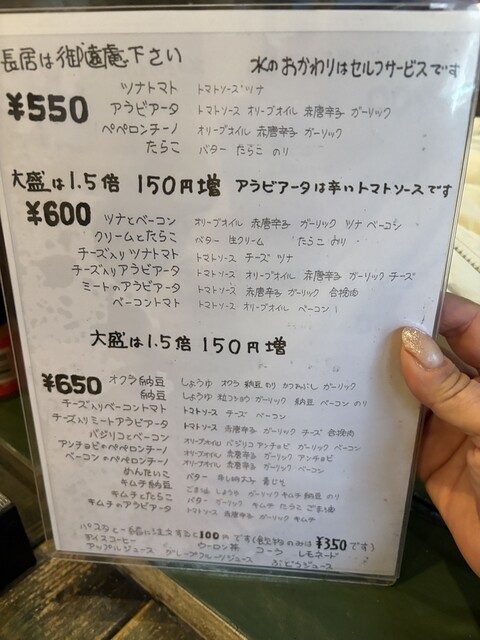 長居は御遠慮下さい 水のおかわりはセルフサービスです
¥550
ツナトマト トマトソース ツナ
アラビアータ トマトソース オリーブオイル 赤唐辛子 ガーリック
ペペロンチーノ オリーブオイル 赤唐辛子 ガーリック
たらこ バター たらこ のり
大盛は1.5倍 150円増 アラビアータは辛いトマトソースです
¥600
ツナとベーコン オリーブオイル 赤唐辛子 ガーリック ツナ ベーコン
クリームとたらこ バター 生クリーム たらこ のり
チーズ入りツナトマト トマトソース チーズ ツナ
チーズ入りアラビアータ トマトソース オリーブオイル 赤唐辛子 ガーリック チーズ
ミートのアラビアータ トマトソース 赤唐辛子 ガーリック 合挽肉
ベーコントマト トマトソース オリーブオイル ベーコン
大盛は1.5倍 150円増
¥650
オクラ納豆 しょうゆ オクラ 納豆 のり かつおぶし ガーリック
納豆 しょうゆ 粒コショウ ガーリック 納豆 ベーコン のり
チーズ入りベーコントマト トマトソース チーズ ベーコン
チーズ入りミートアラビアータ トマトソース 赤唐辛子 ガーリック チーズ 合挽肉
バジリコとベーコン オリーブオイル バジリコ アンチョビ ガーリック ベーコン
アンチョビのペペロンチーノ オリーブオイル 赤唐辛子 ガーリック アンチョビ
ベーコンのペペロンチーノ オリーブオイル 赤唐辛子 ガーリック ベーコン
めんたいこ バター 辛し明太子 青じそ
キムチ納豆 ごま油 しょうゆ ガーリック キムチ 納豆 のり
キムチとたらこ バター ガーリック キムチ たらこ ごま油
キムチのアラビアータ トマトソース 赤唐辛子 ガーリック キムチ
パスタと一緒に注文すると100円です(飲物のみは¥350です)
アイスコーヒー ウーロン茶 コーラ レモネード
アップルジュース グレープフルーツジュース ぶどうジュース